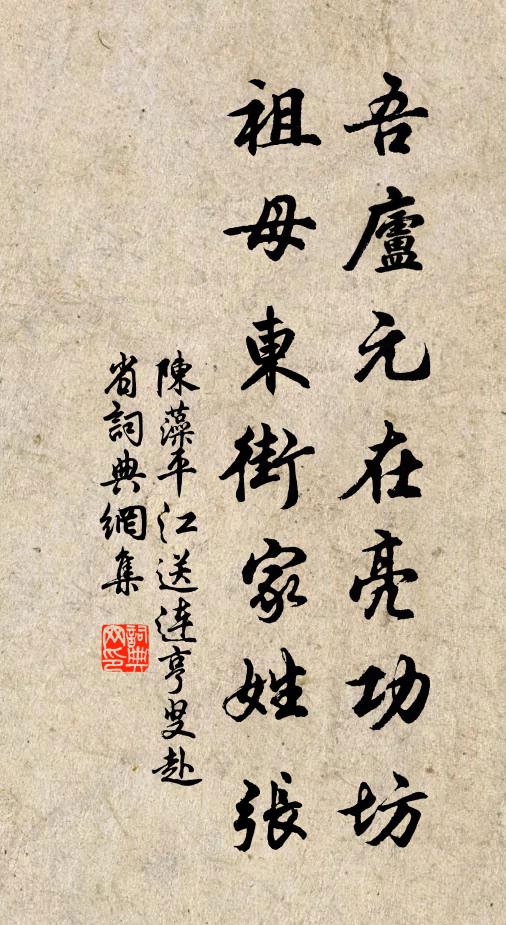 吾廬元在亮功坊
祖母東街家姓張
陳藻平江送連亨叟赴
省詞典網集
詞典
网印